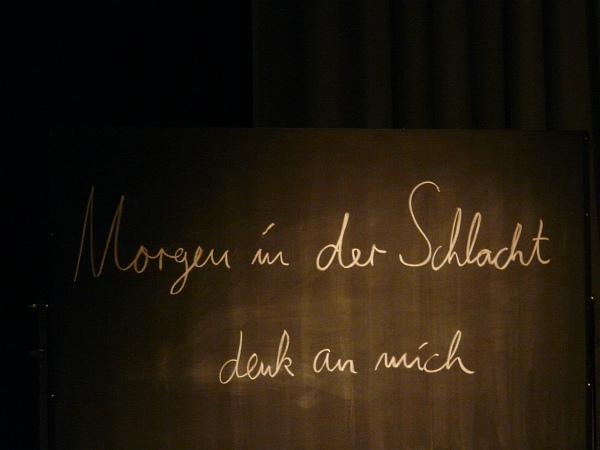 Morgen in der Schlacht
denk an mich